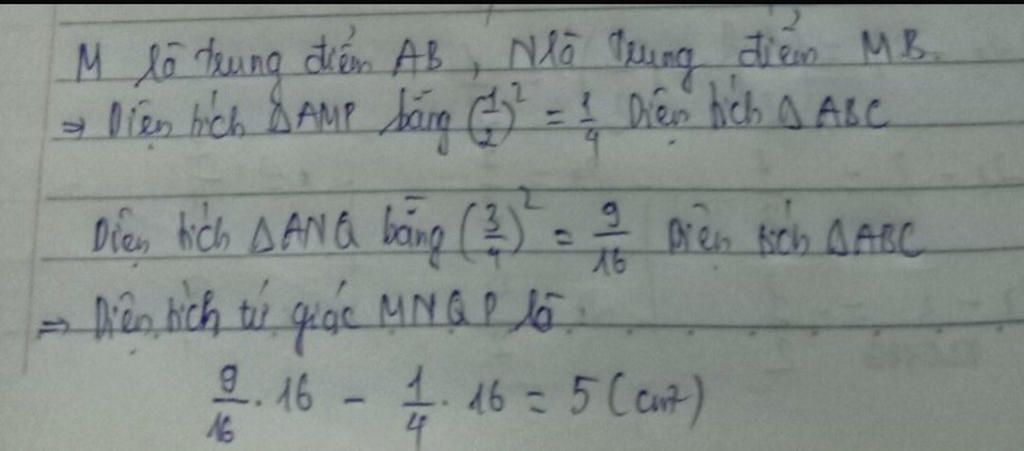 M là trung điểm AB, N là trung điểm MB.
⇒ Diện tích ΔAMP bằng (1/2)² = 1/4 Diện tích ΔABC
Diện tích ΔANQ bằng (3/4)² = 9/16 Diện tích ΔABC
⇒ Diện tích tứ giác MNQP là:
9/16 . 16 - 1/4 . 16 = 5 (cm²)